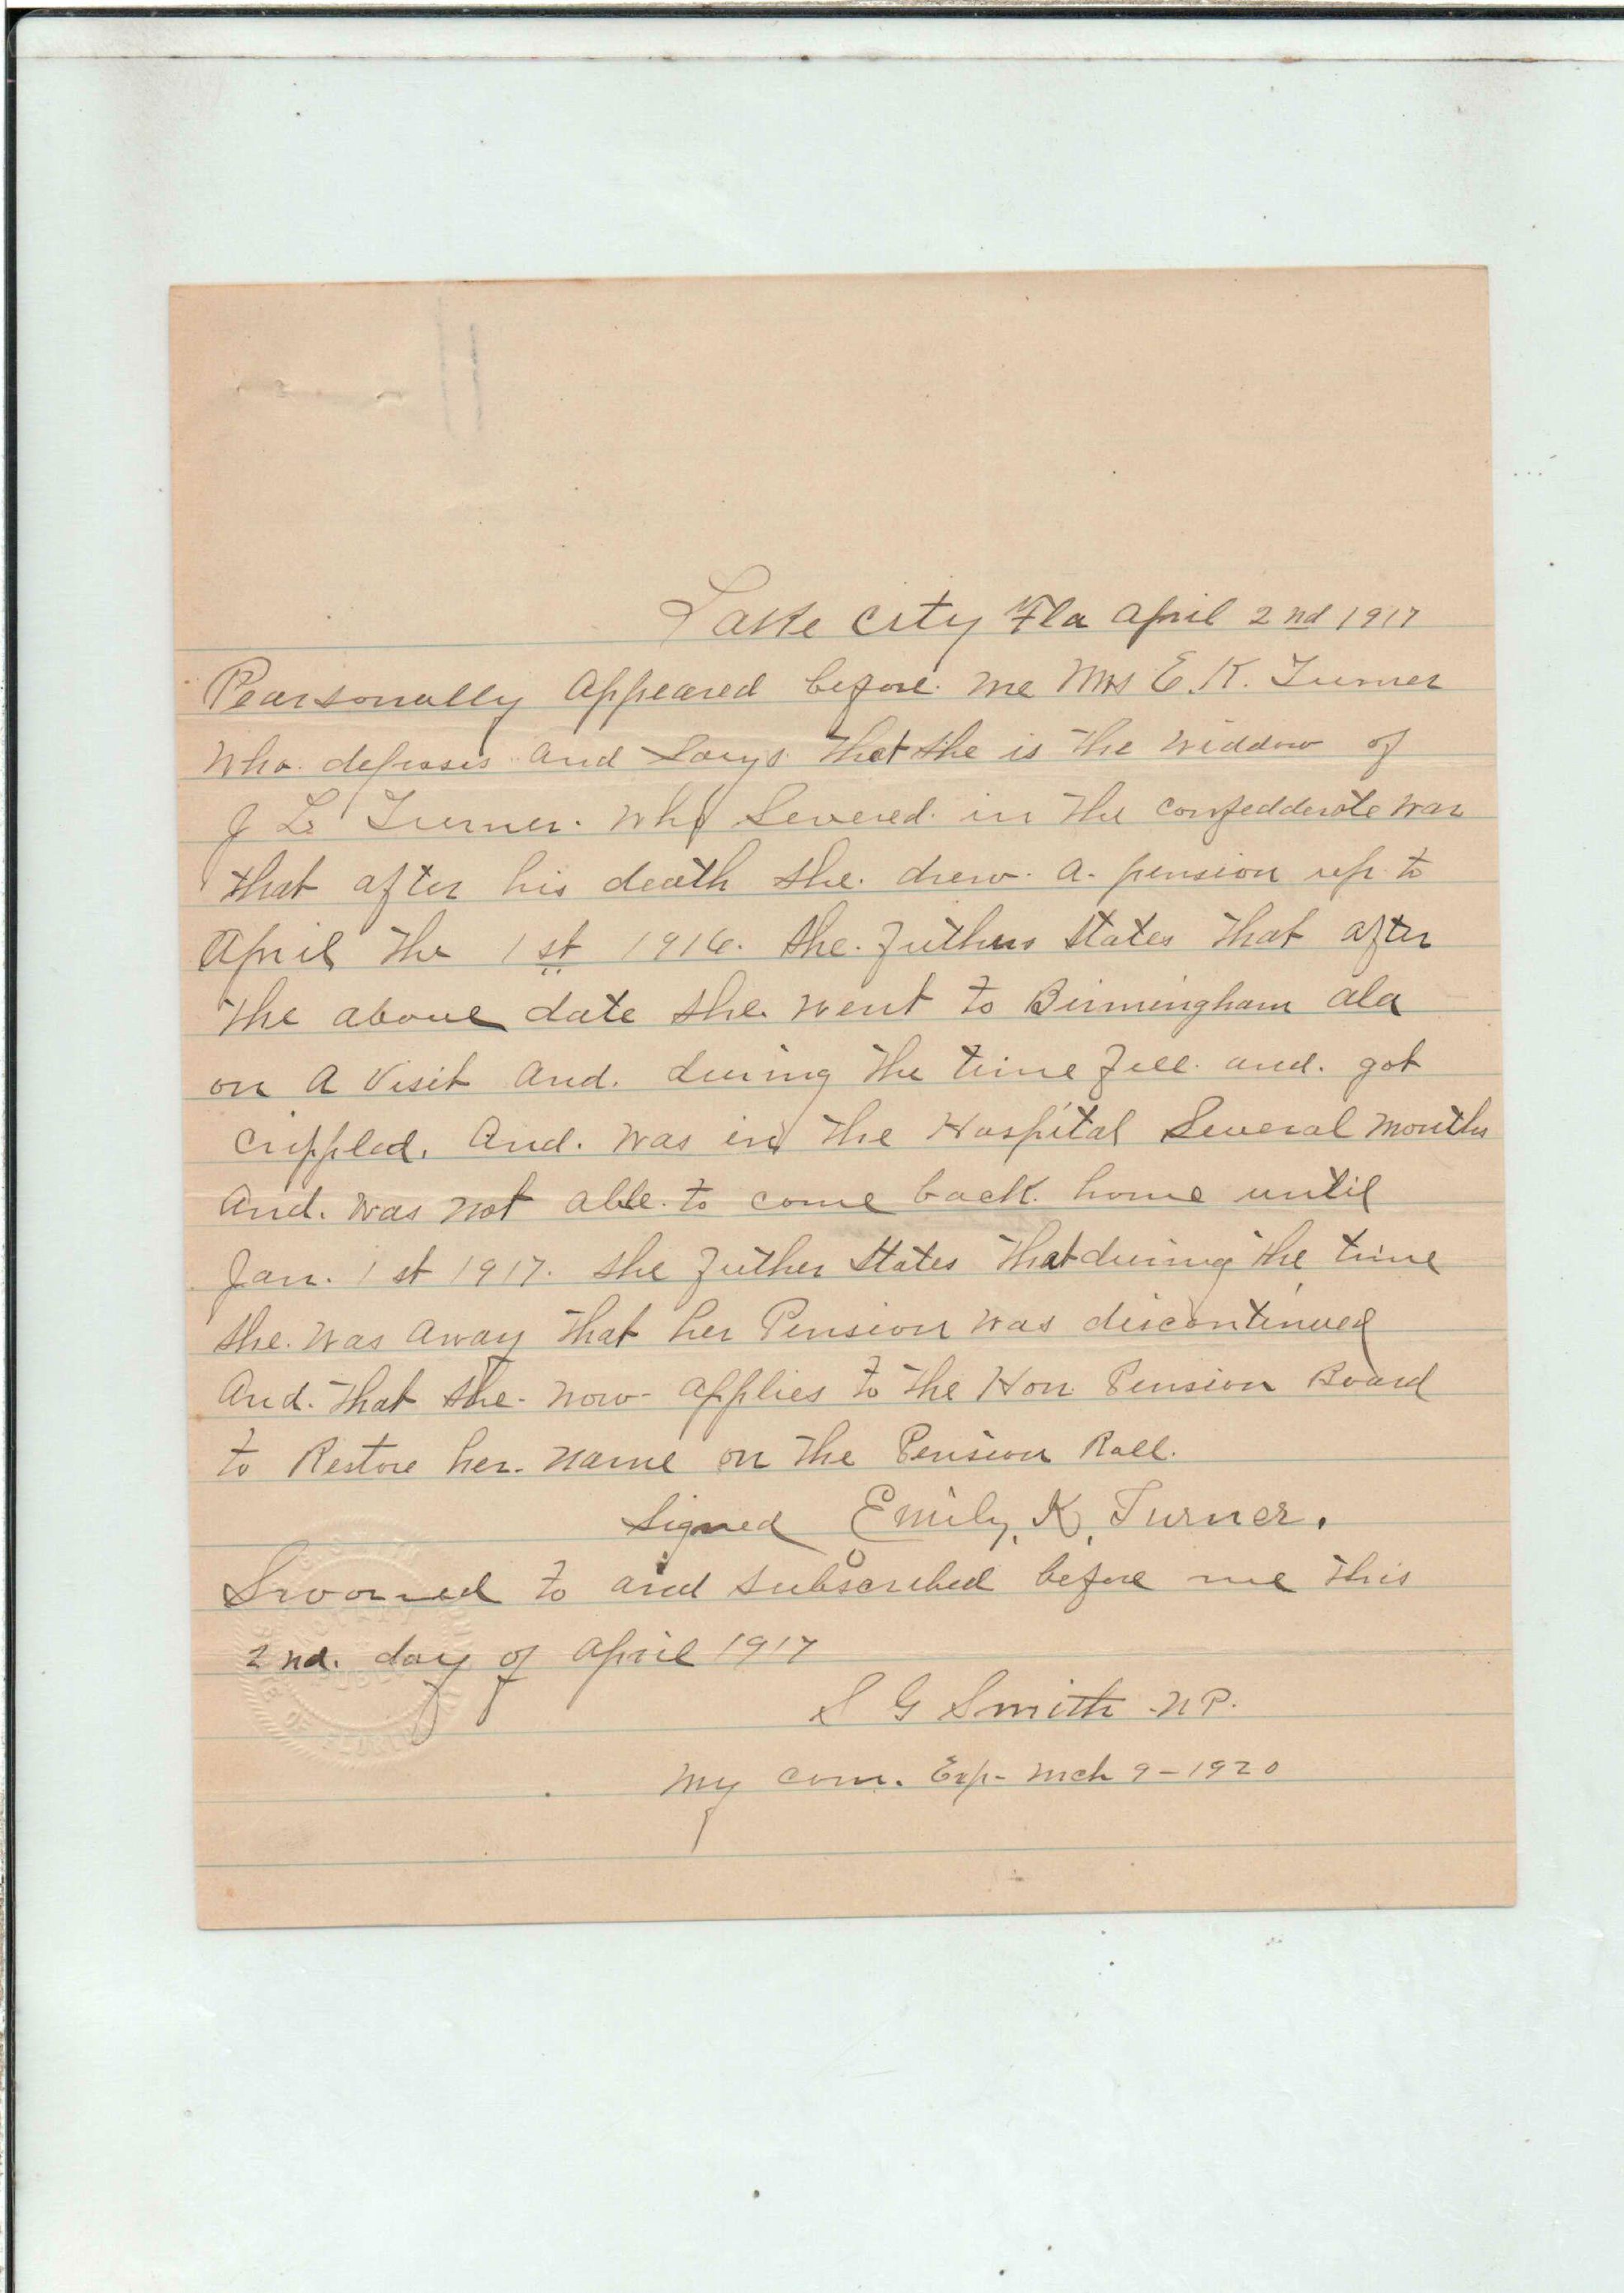 Lake City Fla April 2nd 1917
Pearsonally Appeared before me Mrs E. K. Turner
Who deposses and Says that she is the widdow of
J L Turner. who Severed in the confedderate war
that after his death she drew a pension up to
April the 1st 1916. she futhers states that after
the above date she went to Birmingham Ala
on A Visit and. during the time fell and. got
crippled. And. was in the Hospital Several months
And. was not able to come back home until
Jan. 1st 1917. she futher states that during the time
she was away that her Pension was discontinued
And. that she now applies to the Hon Pension Board
to Restore her name on the Pension Roll.
signed Emily, K, Turner.
Swoarned to and subscribed before me this
2nd. day of April 1917
S G Smith N.P.
My com. Exp- Mch 9-1920